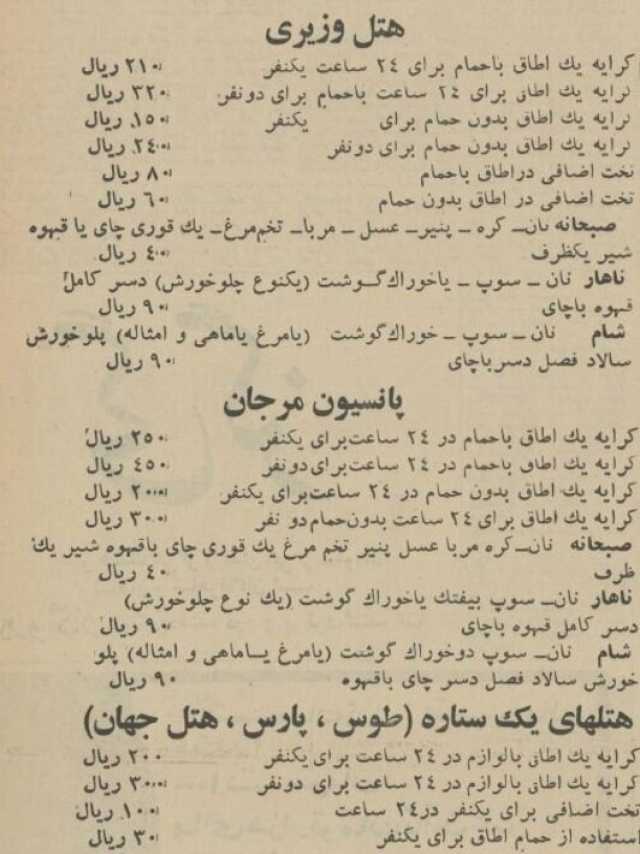 هتل وزیری
کرایه یك اطاق باحمام برای ۲٤ ساعت یکنفر ۲۱۰ ریال
کرایه یك اطاق برای ۲٤ ساعت باحمام برای دونفر ۳۲۰ ریال
کرایه یك اطاق بدون حمام برای یکنفر ۱۵۰ ریال
کرایه یك اطاق بدون حمام برای دونفر ۲٤۰ ریال
تخت اضافی دراطاق باحمام ۸۰ ریال
تخت اضافی در اطاق بدون حمام ٦۰ ریال
صبحانه نان ـ کره ـ پنیر ـ عسل ـ مربا ـ تخم‌مرغ ـ یك قوری چای یا قهوه
شیر یکظرف ٤۰ ریال
ناهار نان ـ سوپ ـ یاخوراك گوشت (یکنوع چلوخورش) دسر کامل
قهوه باچای ۹۰ ریال
شام نان ـ سوپ ـ خوراك گوشت (یامرغ یاماهی و امثاله) پلوخورش
سالاد فصل دسر باچای ۹۰ ریال
پانسیون مرجان
کرایه یك اطاق باحمام در ۲٤ ساعت برای یکنفر ۲۵۰ ریال
کرایه یك اطاق باحمام در ۲٤ ساعت برای دونفر ٤۵۰ ریال
کرایه یك اطاق بدون حمام در ۲٤ ساعت برای یکنفر ۲۰۰ ریال
کرایه یك اطاق برای ۲٤ ساعت بدون حمام دو نفر ۳۰۰ ریال
صبحانه نان ـ کره مربا عسل پنیر تخم مرغ یك قوری چای باقهوه شیر یك
ظرف ٤۰ ریال
ناهار نان ـ سوپ بیفتك یاخوراك گوشت (یك نوع چلوخورش)
دسر کامل قهوه باچای ۹۰ ریال
شام نان ـ سوپ دوخوراك گوشت (یامرغ یـاماهی و امثاله) پلو
خورش سالاد فصل دسر چای باقهوه ۹۰ ریال
هتلهای یك ستاره (طوس ، پارس ، هتل جهان)
کرایه یك اطاق بالوازم در ۲٤ ساعت برای یکنفر ۲۰۰ ریال
کرایه یك اطاق بالوازم در ۲٤ ساعت برای دونفر ۳۰۰ ریال
تخت اضافی برای یکنفر در۲٤ ساعت ۱۰۰ ریال
استفاده از حمام اطاق برای یکنفر ۳۰ ریال